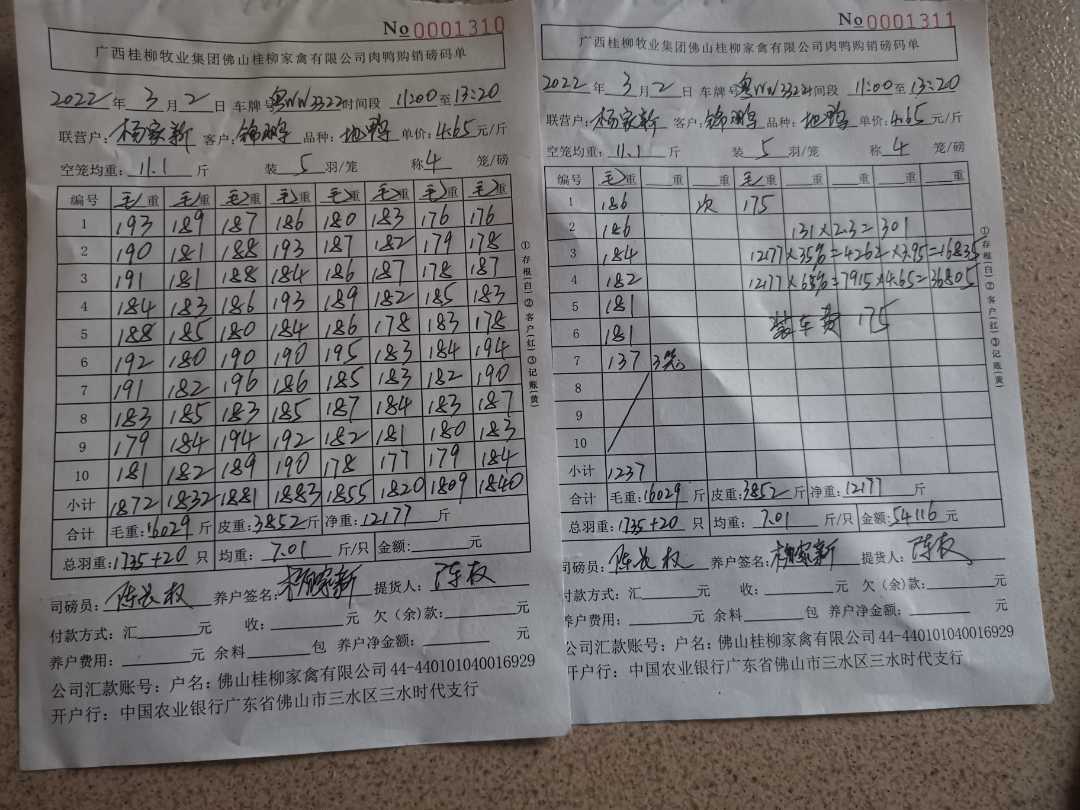 No 0001310
广西桂柳牧业集团佛山桂柳家禽有限公司肉鸭购销磅码单
2022年 3月 2日 车牌号粤WW3322时间段 11:00至13:20
联营户:杨家新 客户:锦鹏 品种:地鸭 单价:4.65元/斤
空笼均重:11.1 斤 装 5 羽/笼 称 4 笼/磅
编号 毛重 毛重 毛重 毛重 毛重 毛重 毛重 毛重
1 193 189 187 186 180 183 176 176
2 190 181 188 193 187 182 179 178
3 191 181 188 184 186 187 178 187
4 184 183 186 193 189 182 185 183
5 188 185 180 184 186 178 183 178
6 192 180 190 190 195 183 184 194
7 191 182 196 186 185 183 182 190
8 183 185 183 185 187 184 183 187
9 179 184 194 192 182 181 180 183
10 181 182 189 190 178 177 179 184
小计 1872 1832 1881 1883 1855 1820 1809 1840
合计 毛重:16029斤 皮重:3852斤 净重:12177 斤
总羽重:1735+20 只 均重:7.01 斤/只 金额: 元
司磅员: 养户签名:杨家新 提货人:陈权
付款方式:汇 元 收: 元 欠(余)款: 元
养户费用: 元 余料 包 养户净金额: 元
公司汇款账号:户名:佛山桂柳家禽有限公司44-440101040016929
开户行:中国农业银行广东省佛山市三水区三水时代支行
①存根(白)②客户(红)③记账(黄)
No 0001311
广西桂柳牧业集团佛山桂柳家禽有限公司肉鸭购销磅码单
2022年 3月 2日 车牌号粤WW3322时间段 11:00至13:20
联营户:杨家新 客户:锦鹏 品种:地鸭 单价:4.65元/斤
空笼均重:11.1 斤 装 5 羽/笼 称 4 笼/磅
编号 毛重 重 重 毛重 重 重 重 重
1 186 次 175
2 186 131×2.3=301
3 184 12177×35%=4262×3.95=16835
4 182 12177×65%=7915×4.65=36805
5 181
6 181 装车费 175
7 137 3笼
8
9
10
小计 1237
合计 毛重:16029斤 皮重:3852斤 净重:12177 斤
总羽重:1735+20 只 均重:7.01 斤/只 金额:54116元
司磅员: 养户签名:杨家新 提货人:陈权
付款方式:汇 元 收: 元 欠(余)款: 元
养户费用: 元 余料 包 养户净金额: 元
公司汇款账号:户名:佛山桂柳家禽有限公司44-440101040016929
开户行:中国农业银行广东省佛山市三水区三水时代支行
①存根(白)②客户(红)③记账(黄)